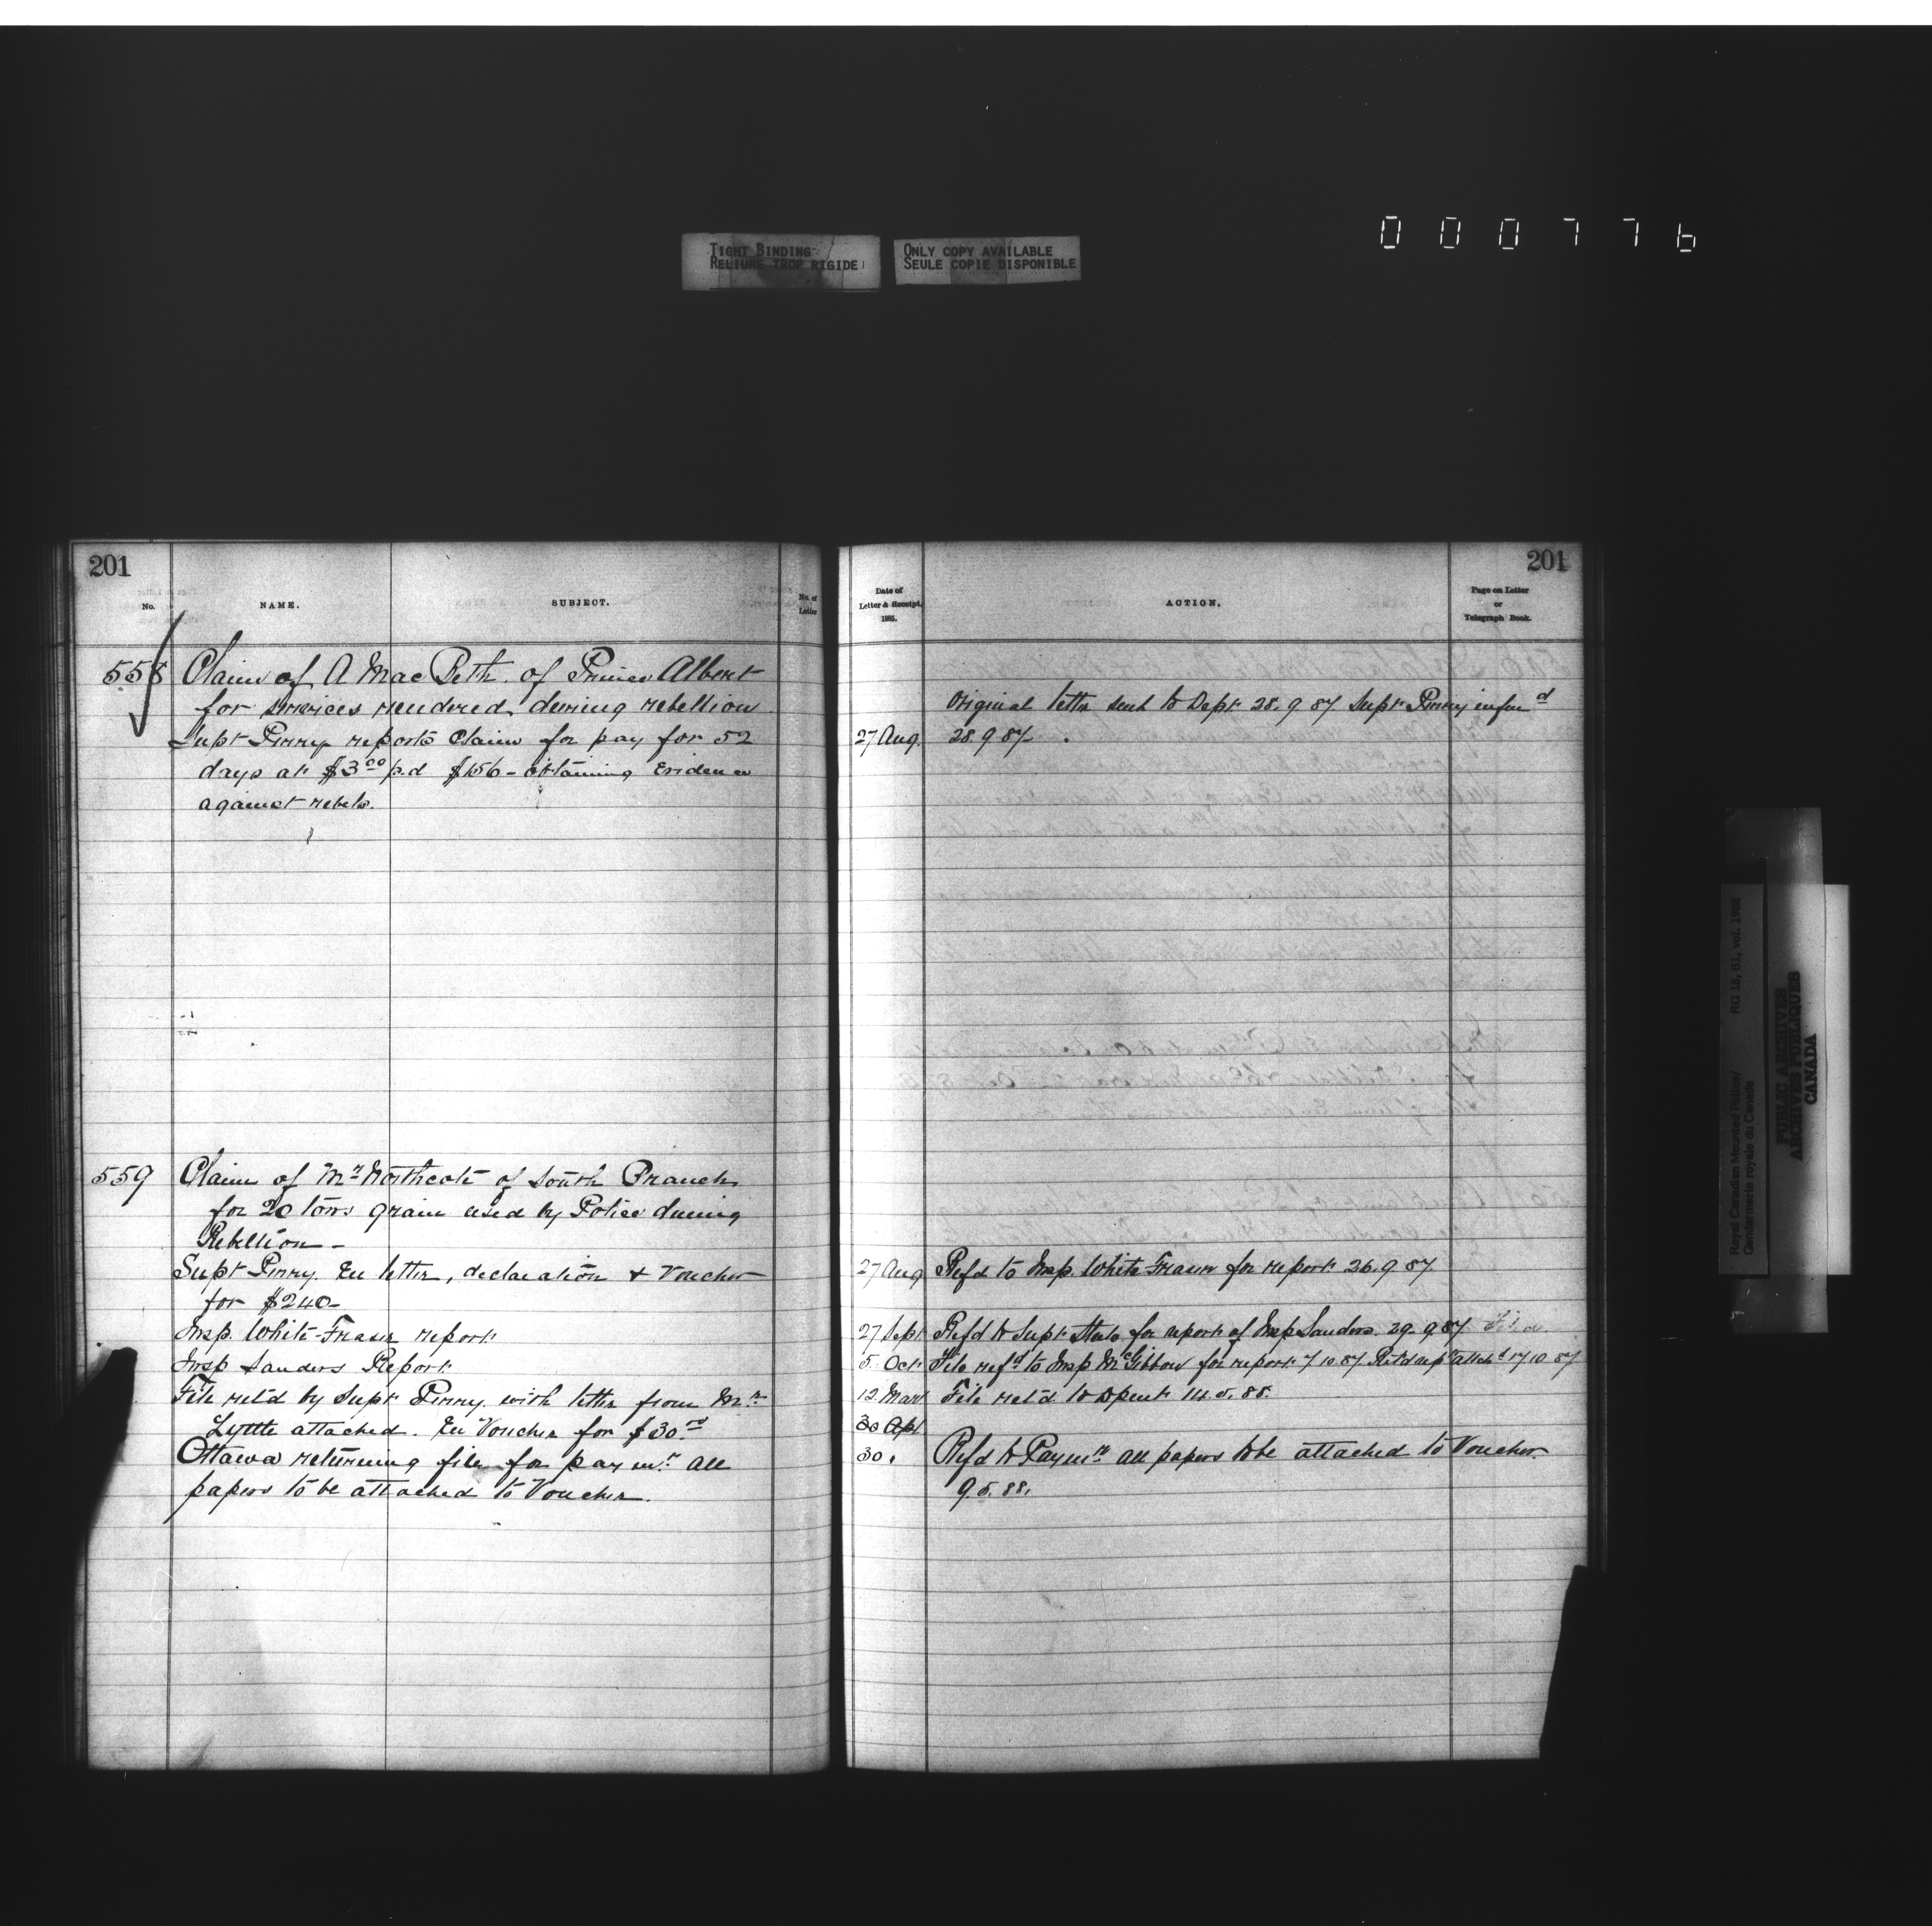 000776
TIGHT BINDING
RELIURE TROP RIGIDE
ONLY COPY AVAILABLE
SEULE COPIE DISPONIBLE
201
No.
NAME.
SUBJECT.
No. of
Letter
558 Claim of A MacBeth. of Prince Albert
for services rendered during rebellion
Supt Perry reports Claim for pay for 52
days at $3.00 p.d $156 - obtaining Evidence
against rebels.
559 Claim of Mr Northcote of South Branch
for 20 tons grain used by Police during
Rebellion -
Supt Perry. En letter, declaration & Voucher
for $240 -
Insp. White-Fraser report
Insp Sanders Report
File ret'd by Supt Perry. with letter from Mr
Lyttle attached. En Voucher for $30.00
Ottawa returning file for paymt. All
papers to be attached to Voucher.
201
Date of
Letter & Receipt.
1885.
ACTION.
Page on Letter
or
Telegraph Book.
Original letter sent to Dept 28.9 87 Supt Perry infmd
27 Aug. 28.9 87.
27 Aug Refd to Insp. White Fraser for report 26.9 87.
27 Sept Refd to Supt for report of Insp Sanders. 29.9 87 Filed.
5. Oct File refd to Insp McGibbon for report 7 10 87 Ret'd rept attchd 17 10 87
12. File ret'd to
30 Apl
30. Refd to Paymt all papers to be attached to Voucher.
9.5.88.
Royal Canadian Mounted Police/
Gendarmerie royale du Canada
RG 18, B1, vol. 1986
PUBLIC ARCHIVES
ARCHIVES PUBLIQUES
CANADA